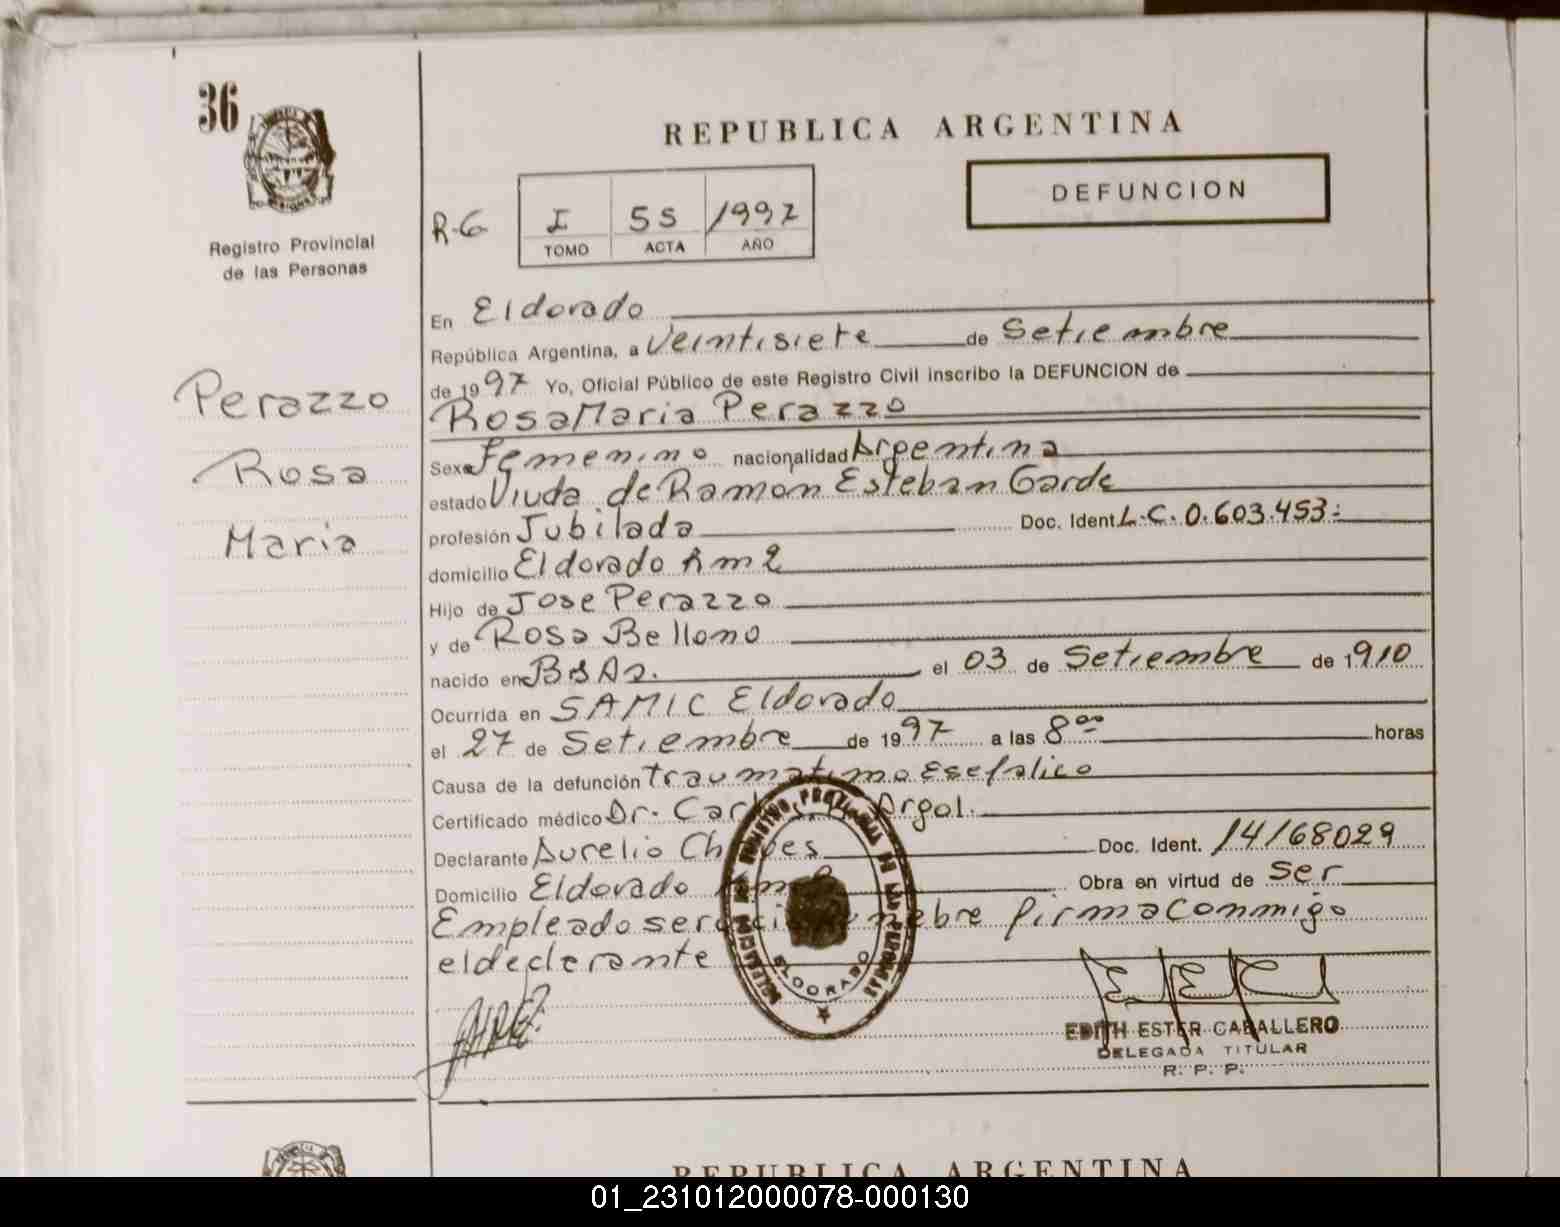 36
REPUBLICA ARGENTINA
DEFUNCION
R-G
I 55 1997
TOMO ACTA AÑO
Registro Provincial
de las Personas
Perazzo
Rosa
Maria
En Eldorado
República Argentina, a Veintisiete de Setiembre
de 1997 Yo, Oficial Público de este Registro Civil inscribo la DEFUNCION de
Rosa Maria Perazzo
Sexo Femenino nacionalidad Argentina
estado Viuda de Ramon Esteban Garde
profesión Jubilada Doc. Ident. L.C. 0.603.453
domicilio Eldorado Km 2
Hijo de Jose Perazzo
y de Rosa Bellomo
nacido en Bs As. el 03 de Setiembre de 1910
Ocurrida en SAMIC Eldorado
el 27 de Setiembre de 1997 a las 8 00 horas
Causa de la defunción traumatismo Esefalico
Certificado médico Dr. Argol.
Declarante Aurelio Doc. Ident. 14168029
Domicilio Eldorado Obra en virtud de ser
Empleado servicio funebre firma conmigo
el declerante
DELEGACION DEL REGISTRO PROVINCIAL DE LAS PERSONAS
ELDORADO
EDITH ESTER CABALLERO
DELEGADA TITULAR
R. P. P.
REPUBLICA ARGENTINA
01_231012000078-000130